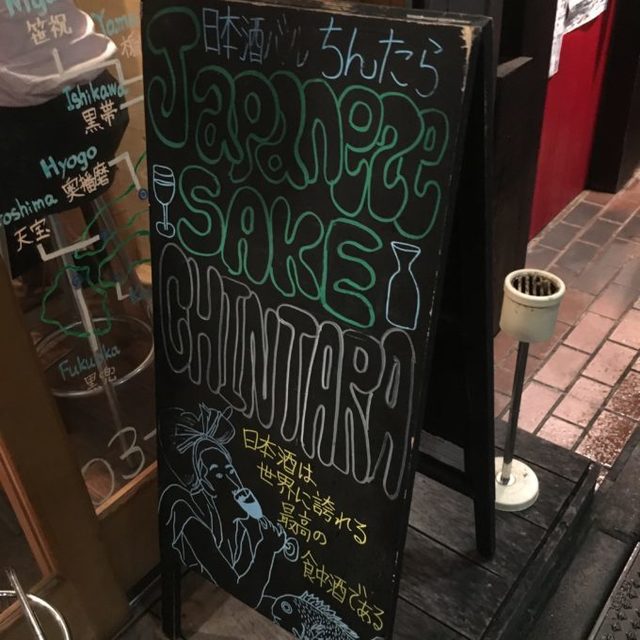 日本酒バル ちんたら
Japaneze
SAKE
CHINTARA
日本酒は
世界に誇れる
最高の
食中酒である
笹祝
Yama
Ishikawa
黒帯
Hyogo
奥播磨
oshima
天宝
Fukuoka
03-